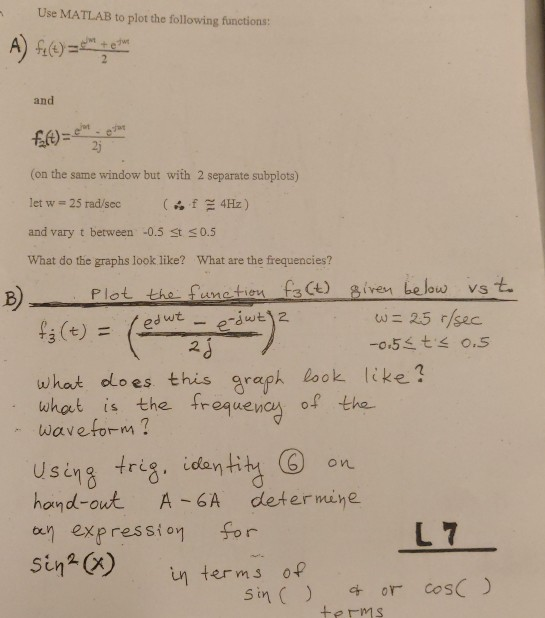 Use MATLAB to plot the following functions:
A) f₁(t) = (e^jwt + e^-jwt) / 2
and
f₂(t) = (e^jwt - e^-jwt) / 2j
(on the same window but with 2 separate subplots)
let w = 25 rad/sec (∴ f ≅ 4Hz)
and vary t between -0.5 ≤t ≤0.5
What do the graphs look like? What are the frequencies?
B) Plot the function f3(t) given below vs t.
f₃(t) = ((e^jwt - e^-jwt) / 2j)^2 w = 25 r/sec
-0.5 ≤ t ≤ 0.5
what does this graph look like?
what is the frequency of the
waveform?
Using trig. identity ⑥ on
hand-out A-6A determine
an expression for L7
sin²(x) in terms of
sin ( ) & or cos( )
terms